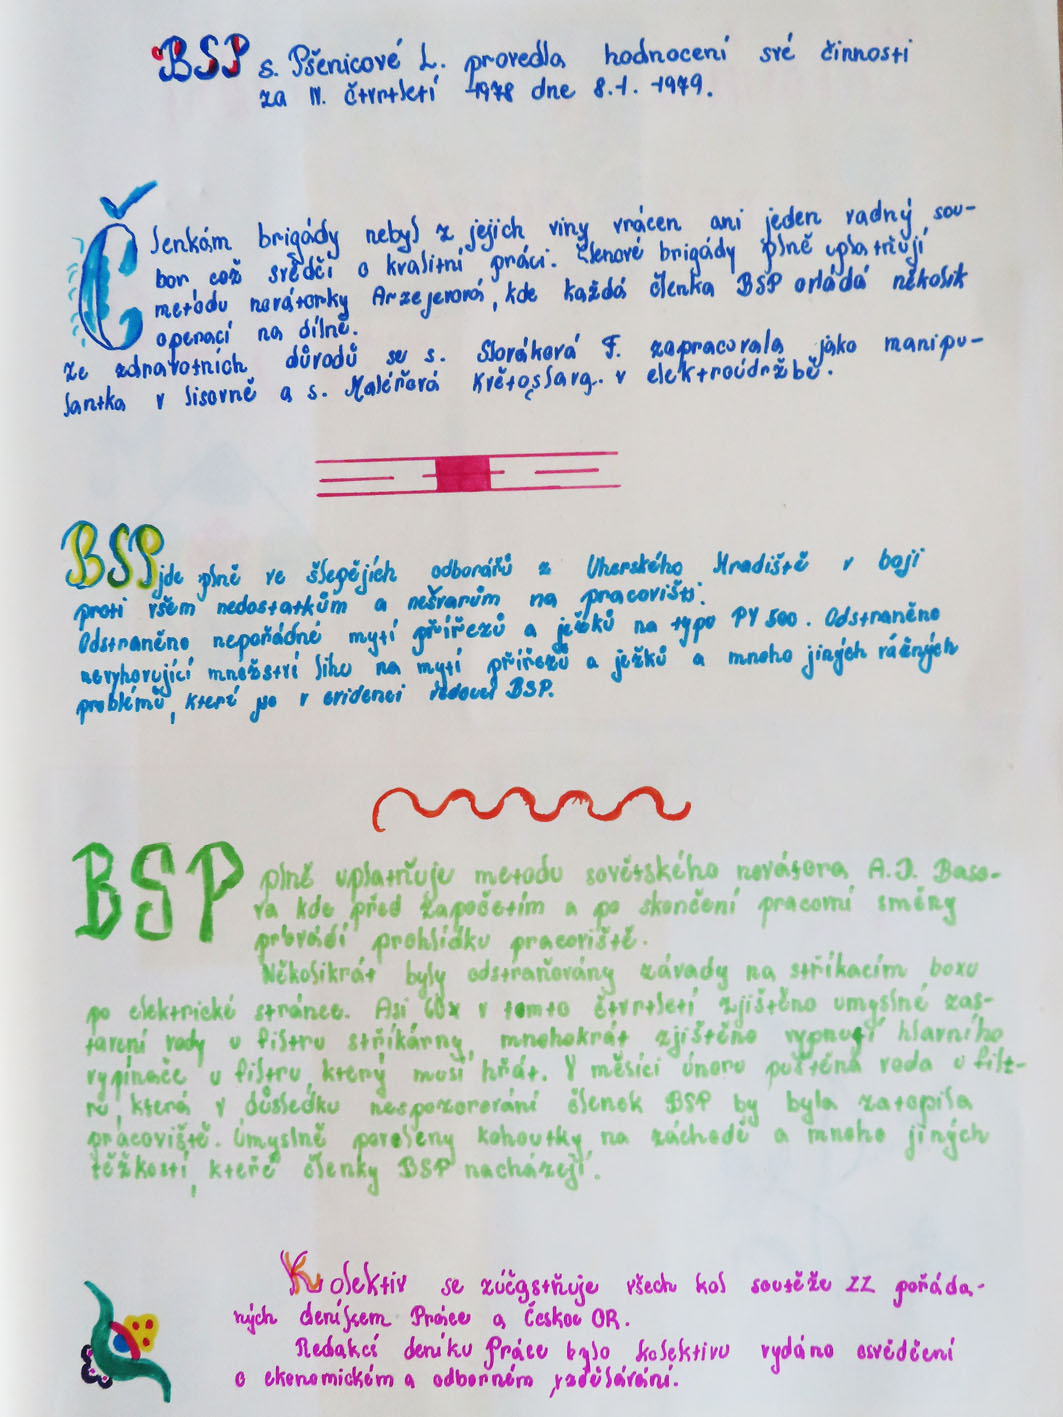 BSP s. Pšenicové L. provedla hodnocení své činnosti
za IV. čtvrtletí 1978 dne 8.1. 1979.
Členkám brigády nebyl z jejich viny vrácen ani jeden vadný sou-
bor což svědčí o kvalitní práci. Členové brigády plně uplatňují
metodu novátorky Arzejevová, kde každá členka BSP ovládá několik
operací na dílně.
Ze zdravotních důvodů se s. Slováková F. zapracovala jako manipu-
lantka v lisovně a s. Maléřová Květoslava. v elektroúdržbě.
BSP jde plně ve šlepějích odborářů z Uherského Hradiště v boji
proti všem nedostatkům a nešvarům na pracovišti.
Odstraněno nepořádné mytí přířezů a ježků na typo PY 500. Odstraněno
nevyhovující množství lihu na mytí přířezů a ježků a mnoho jiných rážných
problémů, které jso v evidenci BSP.
BSP plně uplatňuje metodu sovětského novátora A.J. Baso-
va kde před započetím a po skončení pracovní směny
provádí prohlídku pracoviště.
Několikrát byly odstraňovány závady na stříkacím boxu
po elektrické stránce. Asi 60x v tomto čtvrtletí zjištěno umyslné zas-
tavení vody u filtru stříkárny, mnohokrát zjištěno vypnutí hlavního
vypínače u filtru, který musí hřát. V měsíci únoru puštěná voda u filt-
ru, která v důsledku nespozorování členek BSP by byla zatopila
pracoviště. Úmyslně povoleny kohoutky na záchodě a mnoho jiných
těžkostí, kteře členky BSP nacházejí.
Kolektiv se zúčastňuje všech kol soutěže ZZ pořáda-
ných deníkem Práce a Českou OR.
Redakcí deníku Práce bylo kolektivu vydáno osvědčení
o ekonomickém a odborném vzdělávání.